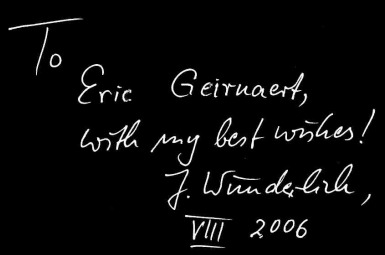 To
Eric Geirnaert,
with my best wishes!
J. Wunderlich,
VIII 2006